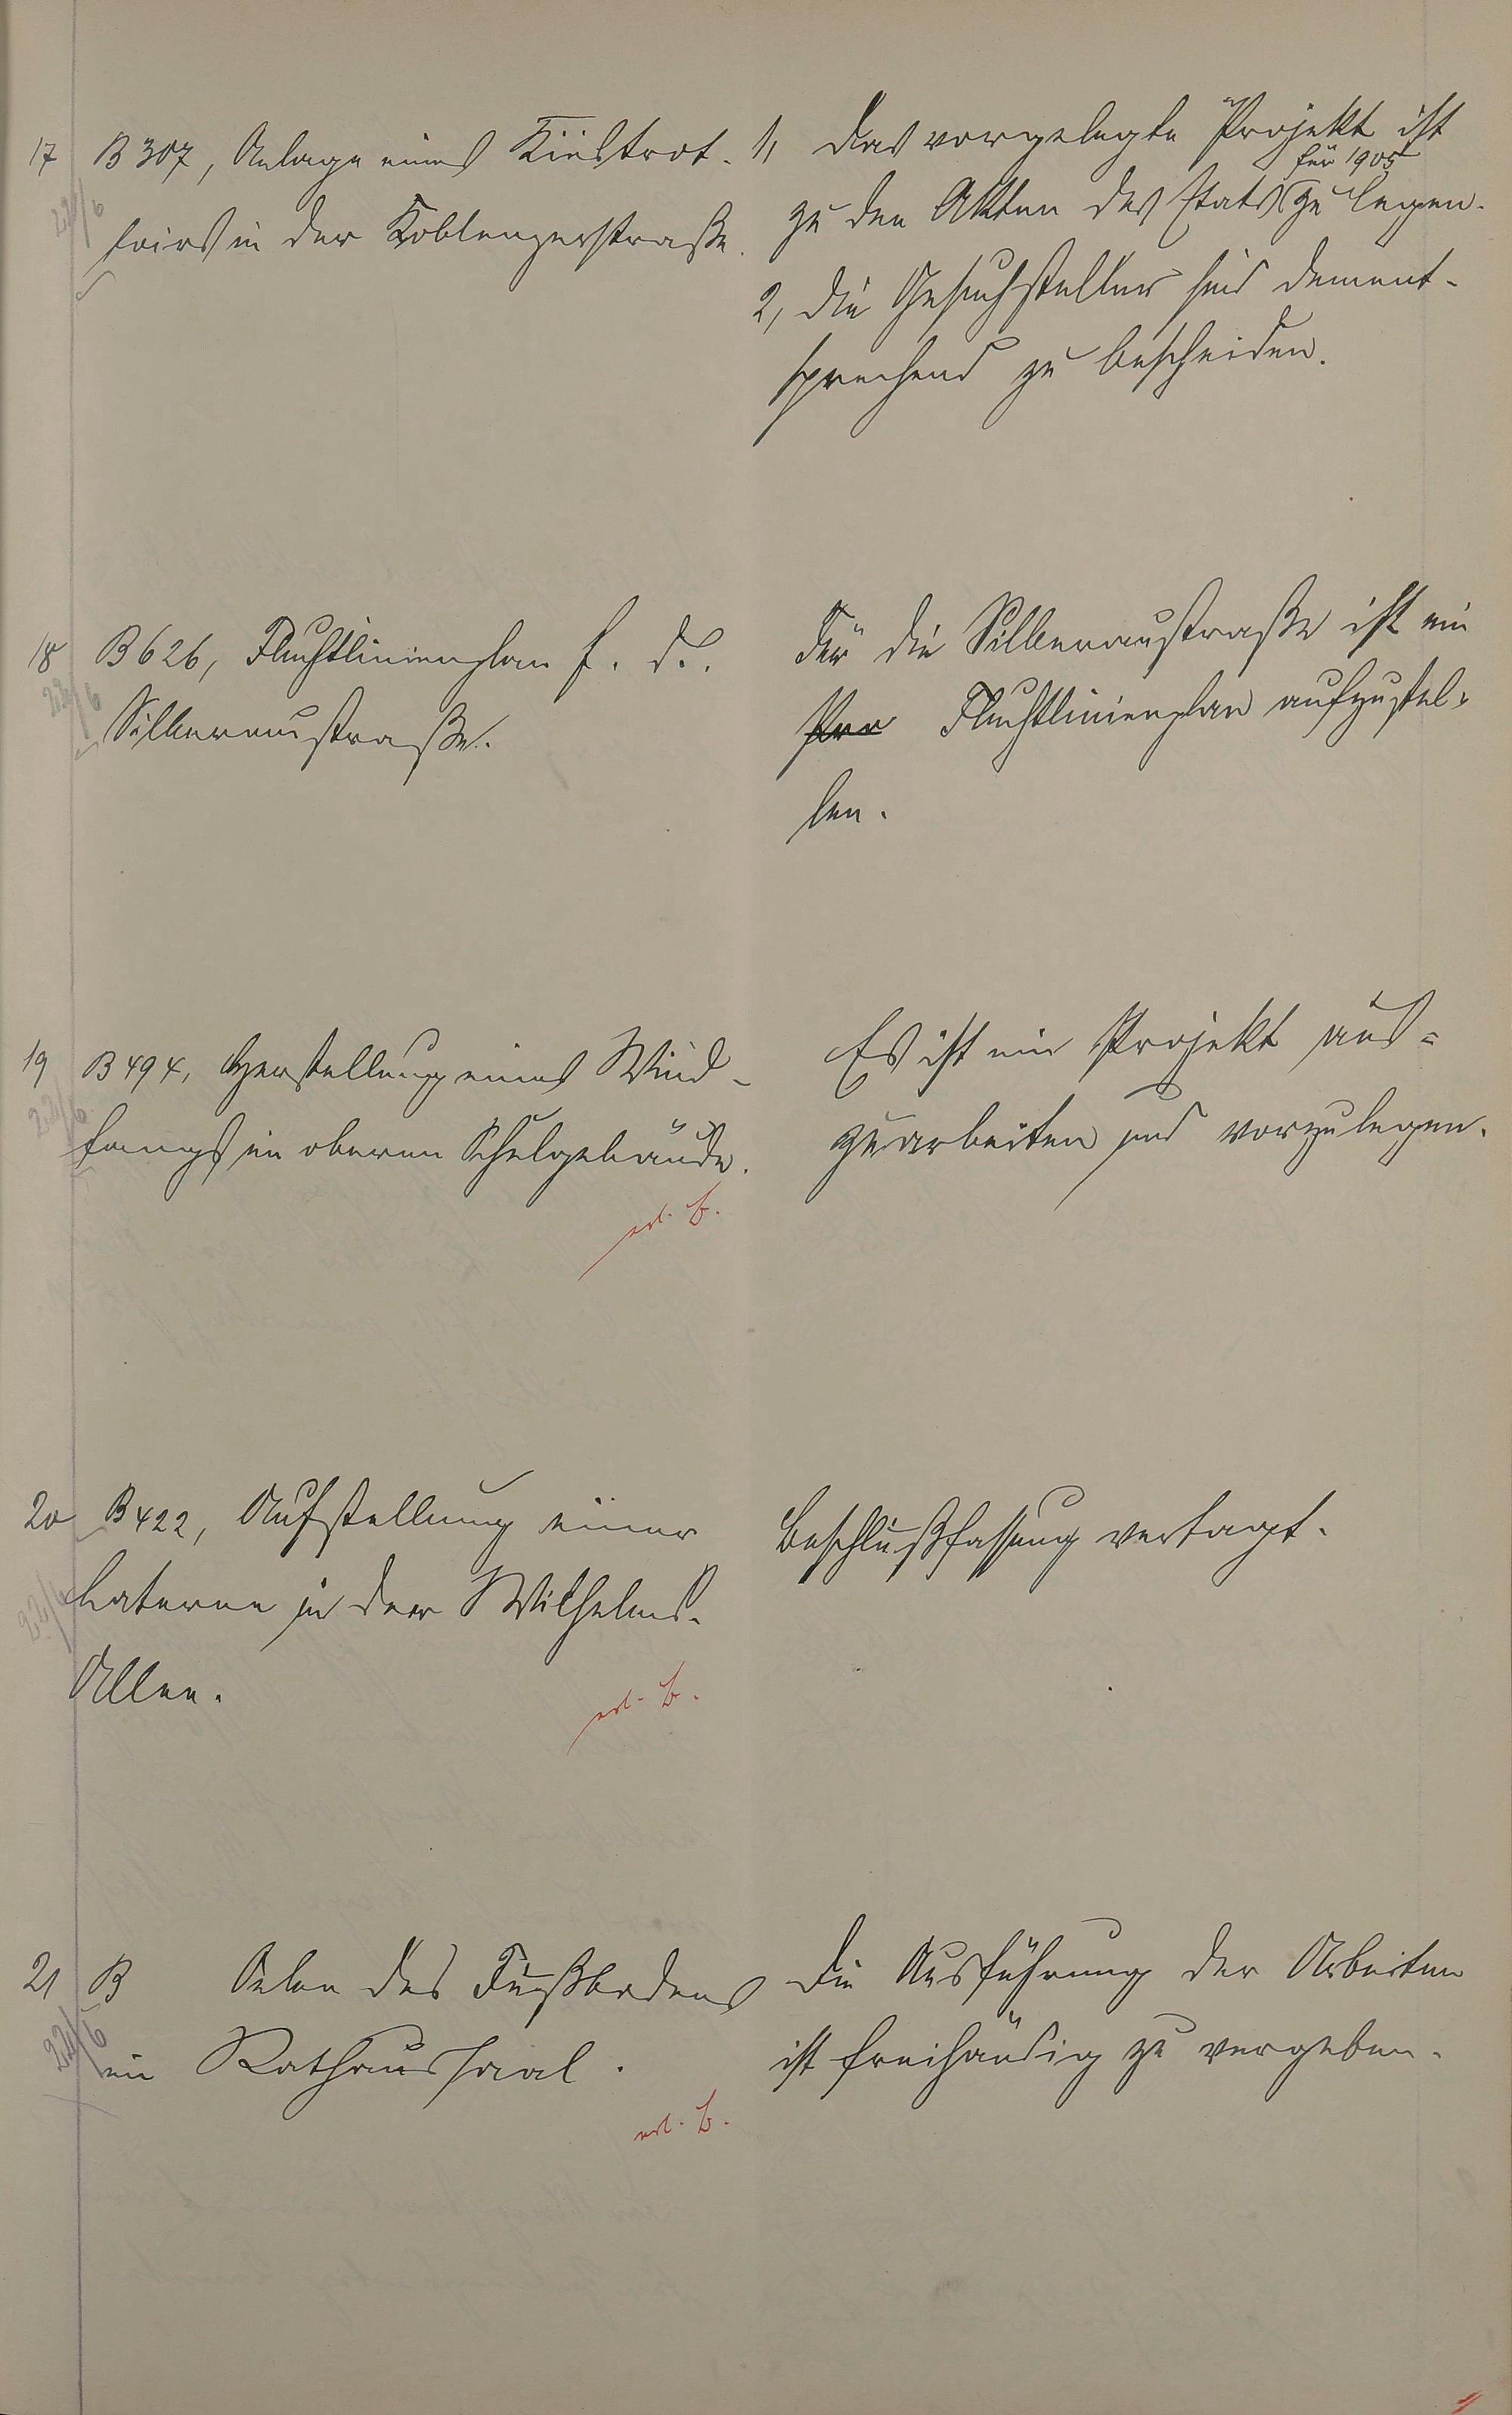 17 B 307, Anlage eines Kiestrot-
toirs in der Koblenzerstraße.
22/6
1, Das vorgelegte Projekt ist
für 1905
zu den Akten des Etats zu legen.
2, die Gesuchsteller sind dement-
sprechend zu bescheiden.
18 B 626, Fluchtlinienplan f. d.
Silberaustraße.
22/6
Für die Silberaustraße ist ein
Pro Fluchtlinienplan aufzustel-
len.
19 B 494, Herstellung eines Wind-
fangs im oberen Schulgebäude.
22/6
erl. B.
Es ist ein Projekt aus=
zuarbeiten und vorzulegen.
20 B 422, Aufstellung einer
Laterne in der Wilhelms-
Allee.
22/6
erl. B.
Beschlußfassung vertagt.
21 B Oelen des Fußbodens
im Rathaussaal.
22/6
erl. B.
Die Ausführung der Arbeiten
ist freihändig zu vergeben.